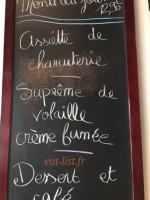 Menu du jour
12,50
Assiette de
charcuterie
Suprême de
volaille
crème fumée
eat-list.fr
Dessert et
café